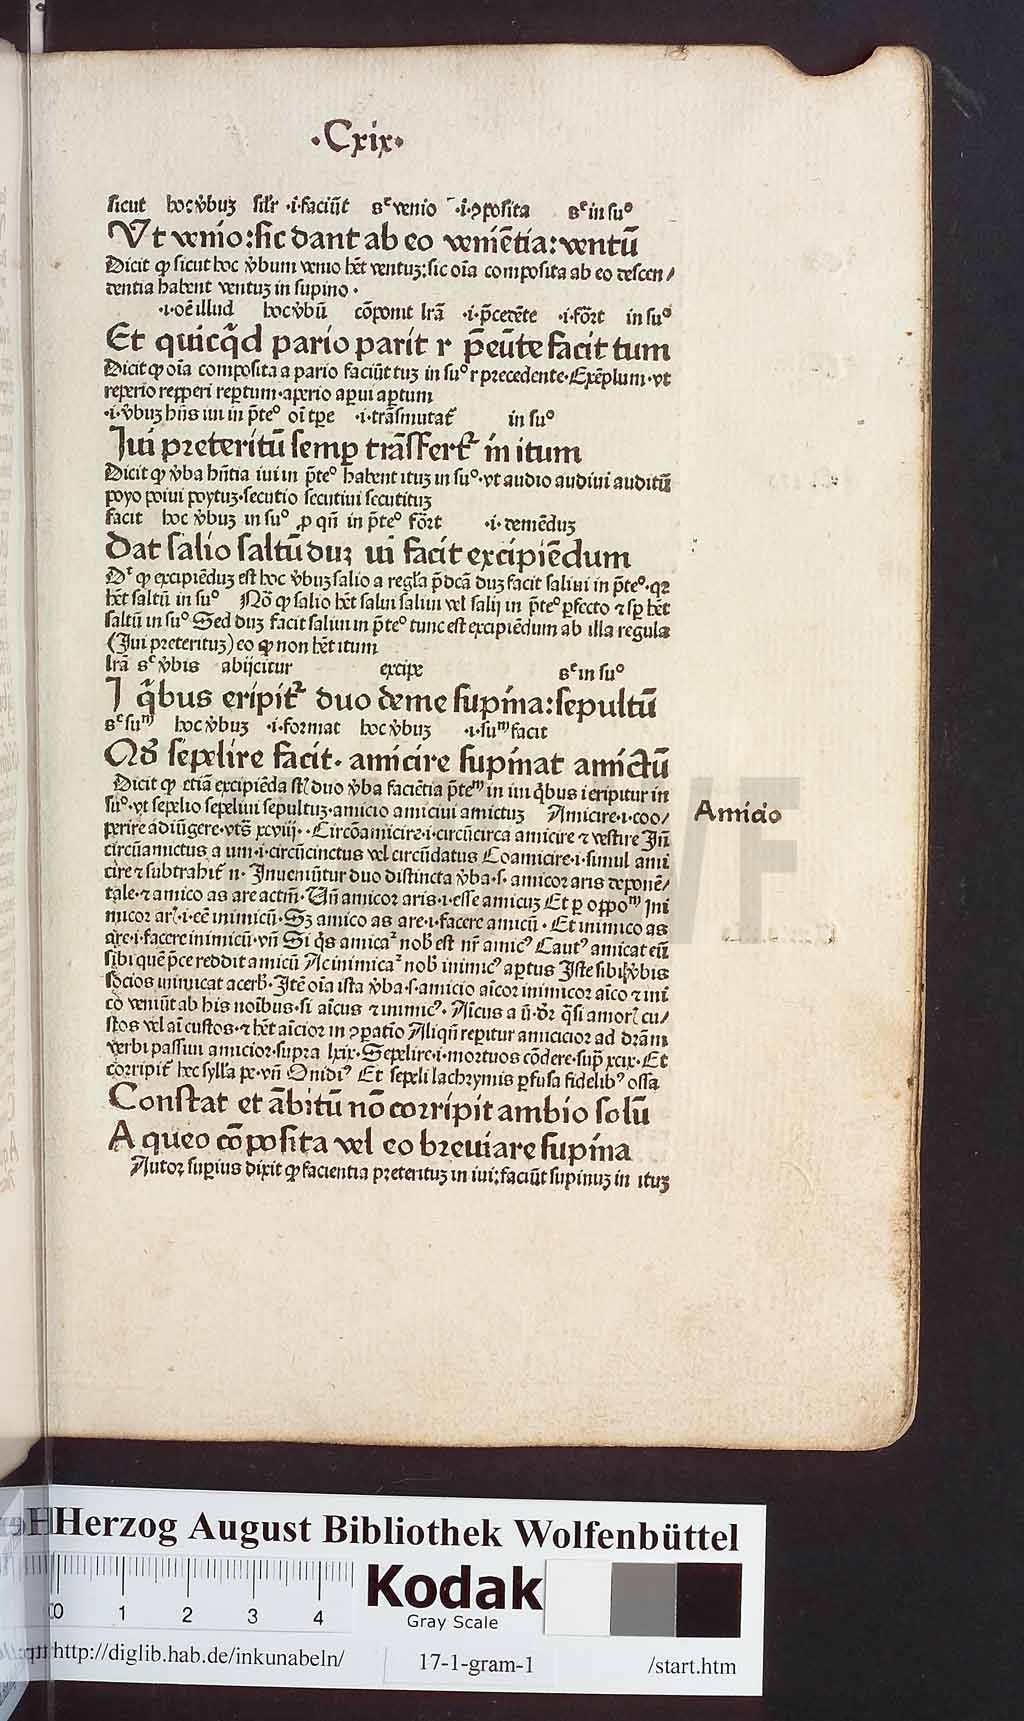 ·Cxix·
sicut hoc v̄buʒ sil̄r ·i·faciūt sᶜ venio ·i·ꝯposita sᶜ in suᵒ
Vt venio:sic dant ab eo veniētia:ventū
Dicit ꝙ sicut hoc v̄bum venio hēt ventuʒ:sic oīa composita ab eo descen/
dentia habent ventuʒ in supino·
·i·oē illud hoc v̄bū cōponit lrā ·i·p̄cedēte ·i·fōrt in suᵒ
Et quicq̄d pario parit r p̄eūte facit tum
Dicit ꝙ oīa composita a pario faciūt tuʒ in suᵒ r precedente·Exēplum·vt
reperio repperi reptum·aperio aꝑui aꝑtum
·i·v̄buʒ hn̄s iui in p̄teᵒ oī tꝑe ·i·trāsmutat᷑ in suᵒ
Jui preteritū semꝑ trāsfert᷑ in itum
Dicit ꝙ v̄ba hn̄tia iui in p̄teᵒ habent ituʒ in suᵒ·vt audio audiui auditū
poyo poiui poytuʒ·secutio secutiui secutituʒ
facit hoc v̄buʒ in suᵒ ꝓ qn̄ in p̄teᵒ fōrt ·i·demēduʒ
Dat salio saltū duʒ ui facit excipiēdum
Dʳ ꝙ excipiēduʒ est hoc v̄buʒ salio a regl̄a p̄dcā duʒ facit saliui in p̄teᵒ·qʒ
hēt saltū in suᵒ Nō ꝙ salio hēt salui saliui vel salij in p̄teᵒ ꝑfecto ⁊ sꝑ hēt
saltū in suᵒ Sed duʒ facit saliui in p̄teᵒ tunc est excipiēdum ab illa regula
(Jui preterituʒ) eo ꝙ non hēt itum
lrā sᶜ v̄bis abijcitur excipe sᶜ in suᵒ
J q̄bus eripit᷑ duo deme supina:sepultū
sᶜ suᵐ hoc v̄buʒ ·i·format hoc v̄buʒ ·i·suᵐ facit
Nob᷑ sepelire facit·amicire supinat amictū
Dicit ꝙ etiā excipiēda st̄ duo v̄ba faciētia p̄teᵐ in iui q̄bus i eripitur in
suᵒ·vt sepelio sepeliui sepultuʒ·amicio amiciui amictus Amicire·i·coo/
perire adiūgere·vtš xcviij·Circūamicire·i·circūcirca amicire ⁊ vestire Jn̄
circūamictus a um·i·circūcinctus vel circūdatus Coamicire·i·simul ami
cire ⁊ subtrahit᷑ n·Jnueniūtur duo distincta v̄ba·s·amicor aris deponē/
tale·⁊ amico as are actiṁ·Vn̄ amicor aris·i·esse amicuʒ Et ꝑ oppoᵐ Jni
micor ar᷑·i·eē inimicū·Sʒ amico as are·i·facere amicū·Et inimico as
are·i·facere inimicū·vn̄ Si q̄s amicaᵗ nob᷑ est nr̄ amicꝰ Cautꝰ amicat eū
sibi quē p̄ce reddit amicū Ac inimicaᵗ nob᷑ inimicꝰ aꝑtus Jste sibi v̄bis
socios inimicat acerb᷑·Jtē oīa ista v̄ba·s·amicio aīcor inimicor aīco ⁊ ini
co veniūt ab his noībus·s᷑ aīcus ⁊ inimicꝰ·Aīcus a ū·dr̄ q̄si amor᷑ cu/
stos vel aī custos·⁊ hēt aīcior in ꝯpatīo Aliqn̄ reꝑitur amicicior ad dr̄am
verbi passiui amicior·supra lxix·Sepelire·i·mortuos cōdere·sup᷑ xcix·Et
corripit᷑ hec sylla pe·vn̄ Ouidiꝰ Et sepeli lachrymis ꝑfusa fidelibꝰ ossa
Constat et ābitū nō corripit ambio solū
A queo cōposita vel eo breuiare supina
Autor superius dixit ꝙ facientia preterituʒ in iui:faciūt supinuʒ in ituʒ
Amicio
Herzog August Bibliothek Wolfenbüttel
0 1 2 3 4
Kodak
Gray Scale
http://diglib.hab.de/inkunabeln/ 17-1-gram-1 /start.htm